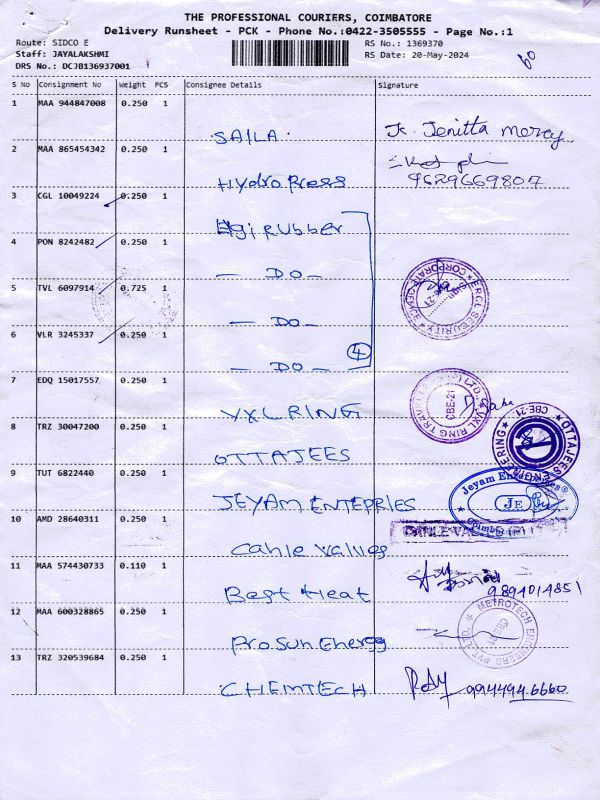 THE PROFESSIONAL COURIERS, COIMBATORE
Delivery Runsheet - PCK - Phone No.:0422-3505555 - Page No.:1
Route: SIDCO E
RS No.: 1369370
Staff: JAYALAKSHMI
RS Date: 20-May-2024
DRS No.: DCJB136937001
S No Consignment No Weight PCS Consignee Details Signature
1 MAA 944847008 0.250 1
SAILA. Jenitta mercy
2 MAA 865454342 0.250 1
Hydro Press 9629669807
3 CGL 10049224 0.250 1
Elgi Rubber
4 PON 8242482 0.250 1
- DO -
5 TVL 6097914 0.725 1
- DO -
ERGL SECURITY CORPORATE OFFICE
6 VLR 3245337 0.250 1
- DO -
4
7 EDQ 15017557 0.250 1
VXL RING
CBE-21
8 TRZ 30047200 0.250 1
OTTAJEES
OTTAJEES ENGINEERING CBE-21
9 TUT 6822440 0.250 1
JEYAM ENTEPRIES
Jeyam Enterprises JE
10 AMD 28640311 0.250 1
Cahle Valves
11 MAA 574430733 0.110 1
Best Heat 9894014851
12 MAA 600328865 0.250 1
Pro Sun Energy
METROTECH ENGINEERS PVT. LTD.
13 TRZ 320539684 0.250 1
CHEMTECH 994494 6660